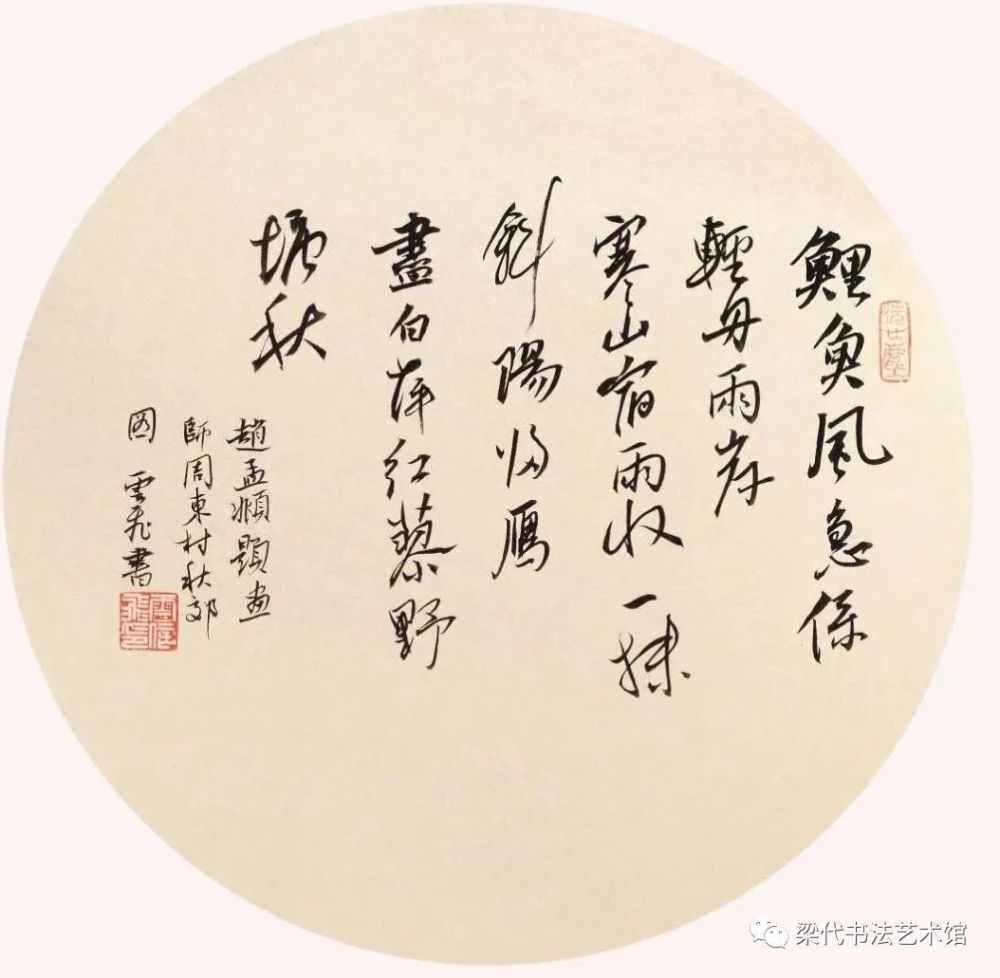 鯉魚風急係
輕舟兩岸
寒山宿雨收一抹
斜陽归鴈
盡白萍红蓼野
塘秋
趙孟頫題画
師周東村秋郊
圖 雲飛書
梁代书法艺术馆